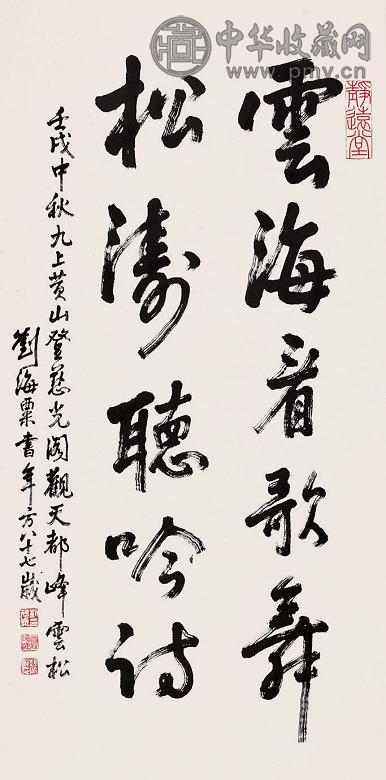 中华收藏网
www.pmv.cn
靜遠堂
雲海看歌舞
松濤聽吟詩
壬戌中秋九上黄山登慈光阁觀天都峰雲松
劉海粟書年方八十七歲